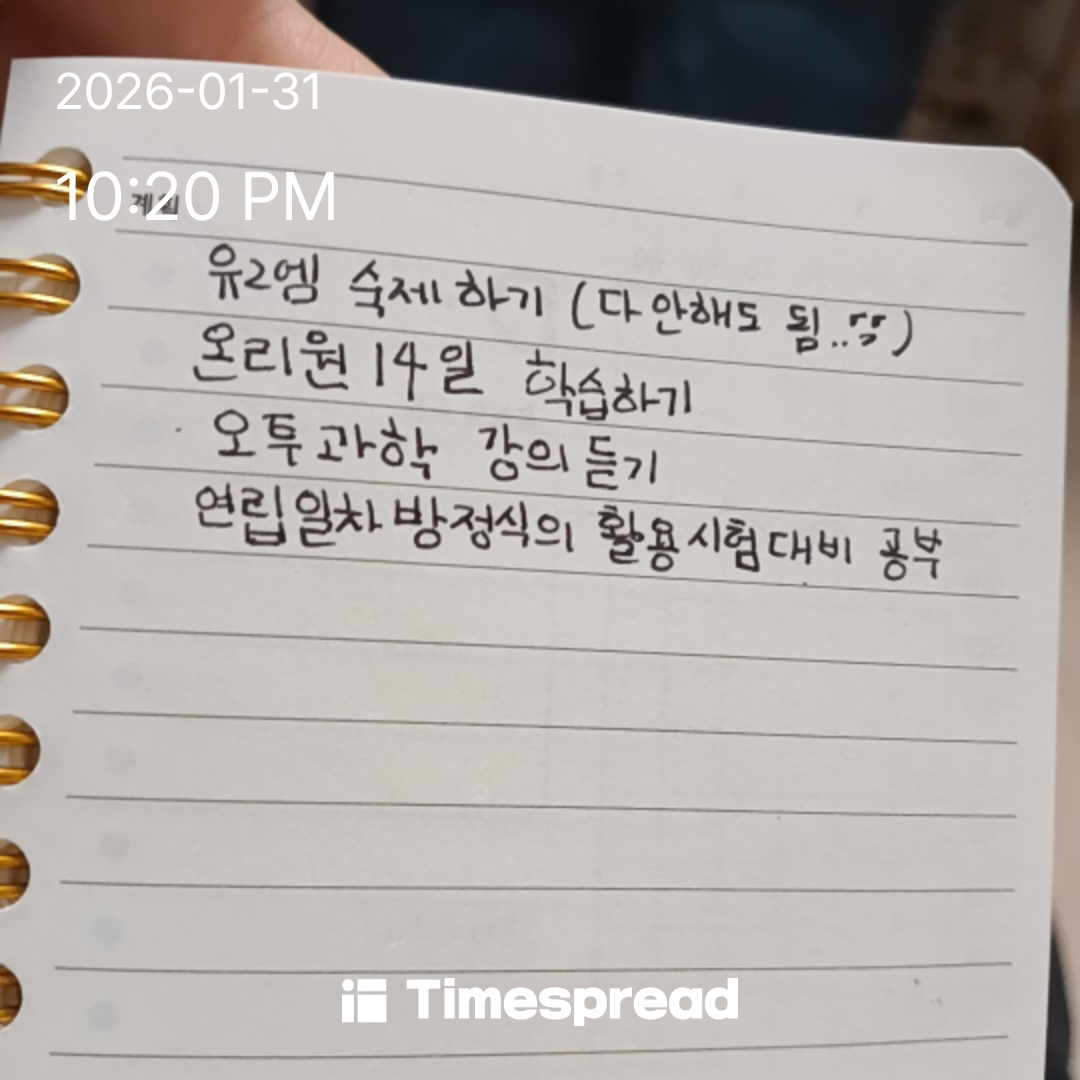 2026-01-31
10:20 PM
계획
유2엠 숙제하기 (다 안해도 됨..)
온리원 14일 학습하기
오투과학 강의듣기
연립일차방정식의 활용시험대비 공부
Timespread